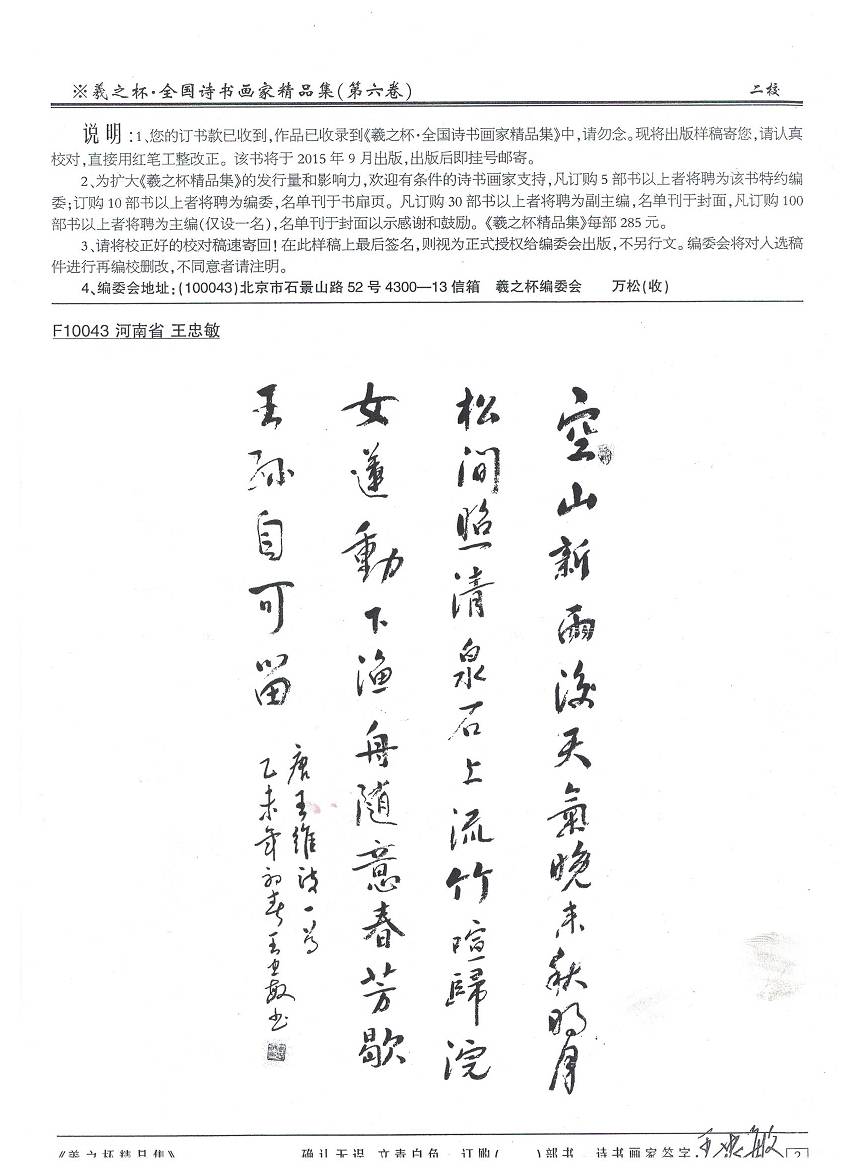 ※羲之杯·全国诗书画家精品集(第六卷) 二校
说明:1、您的订书款已收到,作品已收录到《羲之杯·全国诗书画家精品集》中,请勿念。现将出版样稿寄您,请认真
校对,直接用红笔工整改正。该书将于 2015 年 9 月出版,出版后即挂号邮寄。
2、为扩大《羲之杯精品集》的发行量和影响力,欢迎有条件的诗书画家支持,凡订购 5 部书以上者将聘为该书特约编
委;订购 10 部书以上者将聘为编委,名单刊于书扉页。凡订购 30 部书以上者将聘为副主编,名单刊于封面,凡订购 100
部书以上者将聘为主编(仅设一名),名单刊于封面以示感谢和鼓励。《羲之杯精品集》每部 285 元。
3、请将校正好的校对稿速寄回!在此样稿上最后签名,则视为正式授权给编委会出版,不另行文。编委会将对人选稿
件进行再编校删改,不同意者请注明。
4、编委会地址:(100043)北京市石景山路 52 号 4300—13 信箱 羲之杯编委会 万松(收)
F10043 河南省 王忠敏
空山新雨後天氣晚来秋明月
松间照清泉石上流竹喧歸浣
女蓮動下渔舟随意春芳歇
王孙自可留
唐王维诗一首
乙未年初春王忠敏书
《羲之杯精品集》 确认无误,文责自负。订购( )部书。诗书画家签字:王忠敏 2